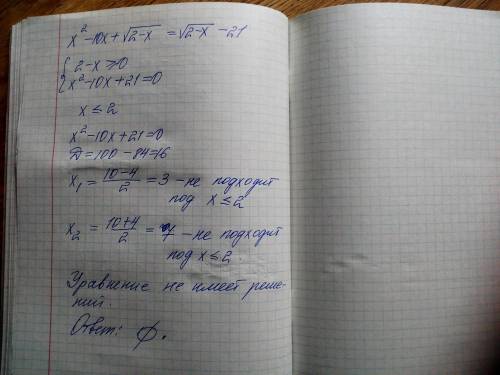 x² - 10x + √2-x = √2-x - 21
{ 2-x ≥ 0
x² - 10x + 21 = 0
x ≤ 2
x² - 10x + 21 = 0
Д = 100 - 84 = 16
x₁ = (10-4)/2 = 3 - не подходит
под x ≤ 2
x₂ = (10+4)/2 = 7 - не подходит
под x ≤ 2
Уравнение не имеет реше-
ний.
Ответ: ∅.